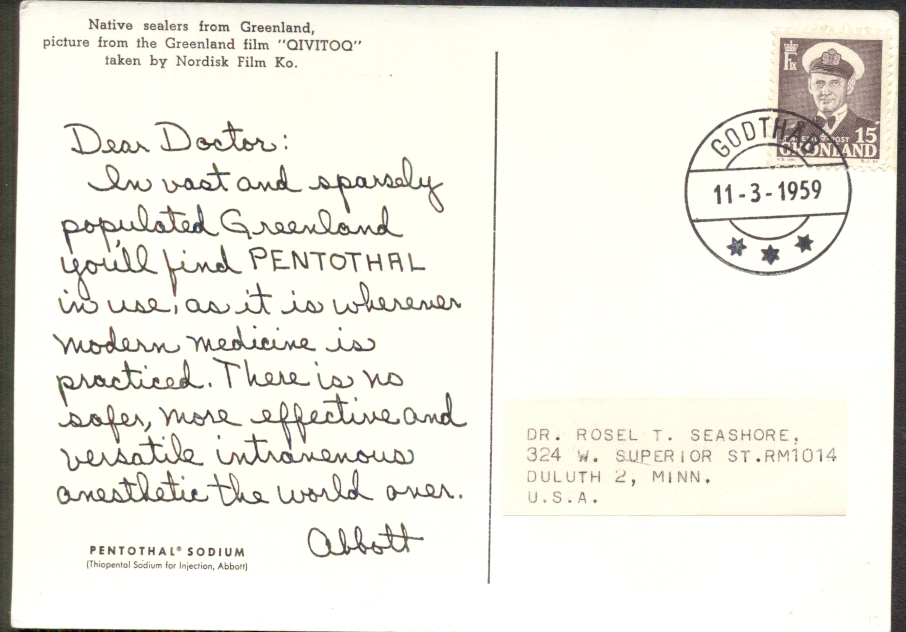 Native sealers from Greenland,
picture from the Greenland film "QIVITOQ"
taken by Nordisk Film Ko.
Dear Doctor:
In vast and sparsely
populated Greenland
you'll find PENTOTHAL
in use, as it is wherever
modern medicine is
practiced. There is no
safer, more effective and
versatile intravenous
anesthetic the world over.
Abbott
PENTOTHAL® SODIUM
(Thiopental Sodium for Injection, Abbott)
15
GRØNLAND
GODTHÅB
11-3-1959
DR. ROSEL T. SEASHORE,
324 W. SUPERIOR ST.RM1014
DULUTH 2, MINN.
U.S.A.